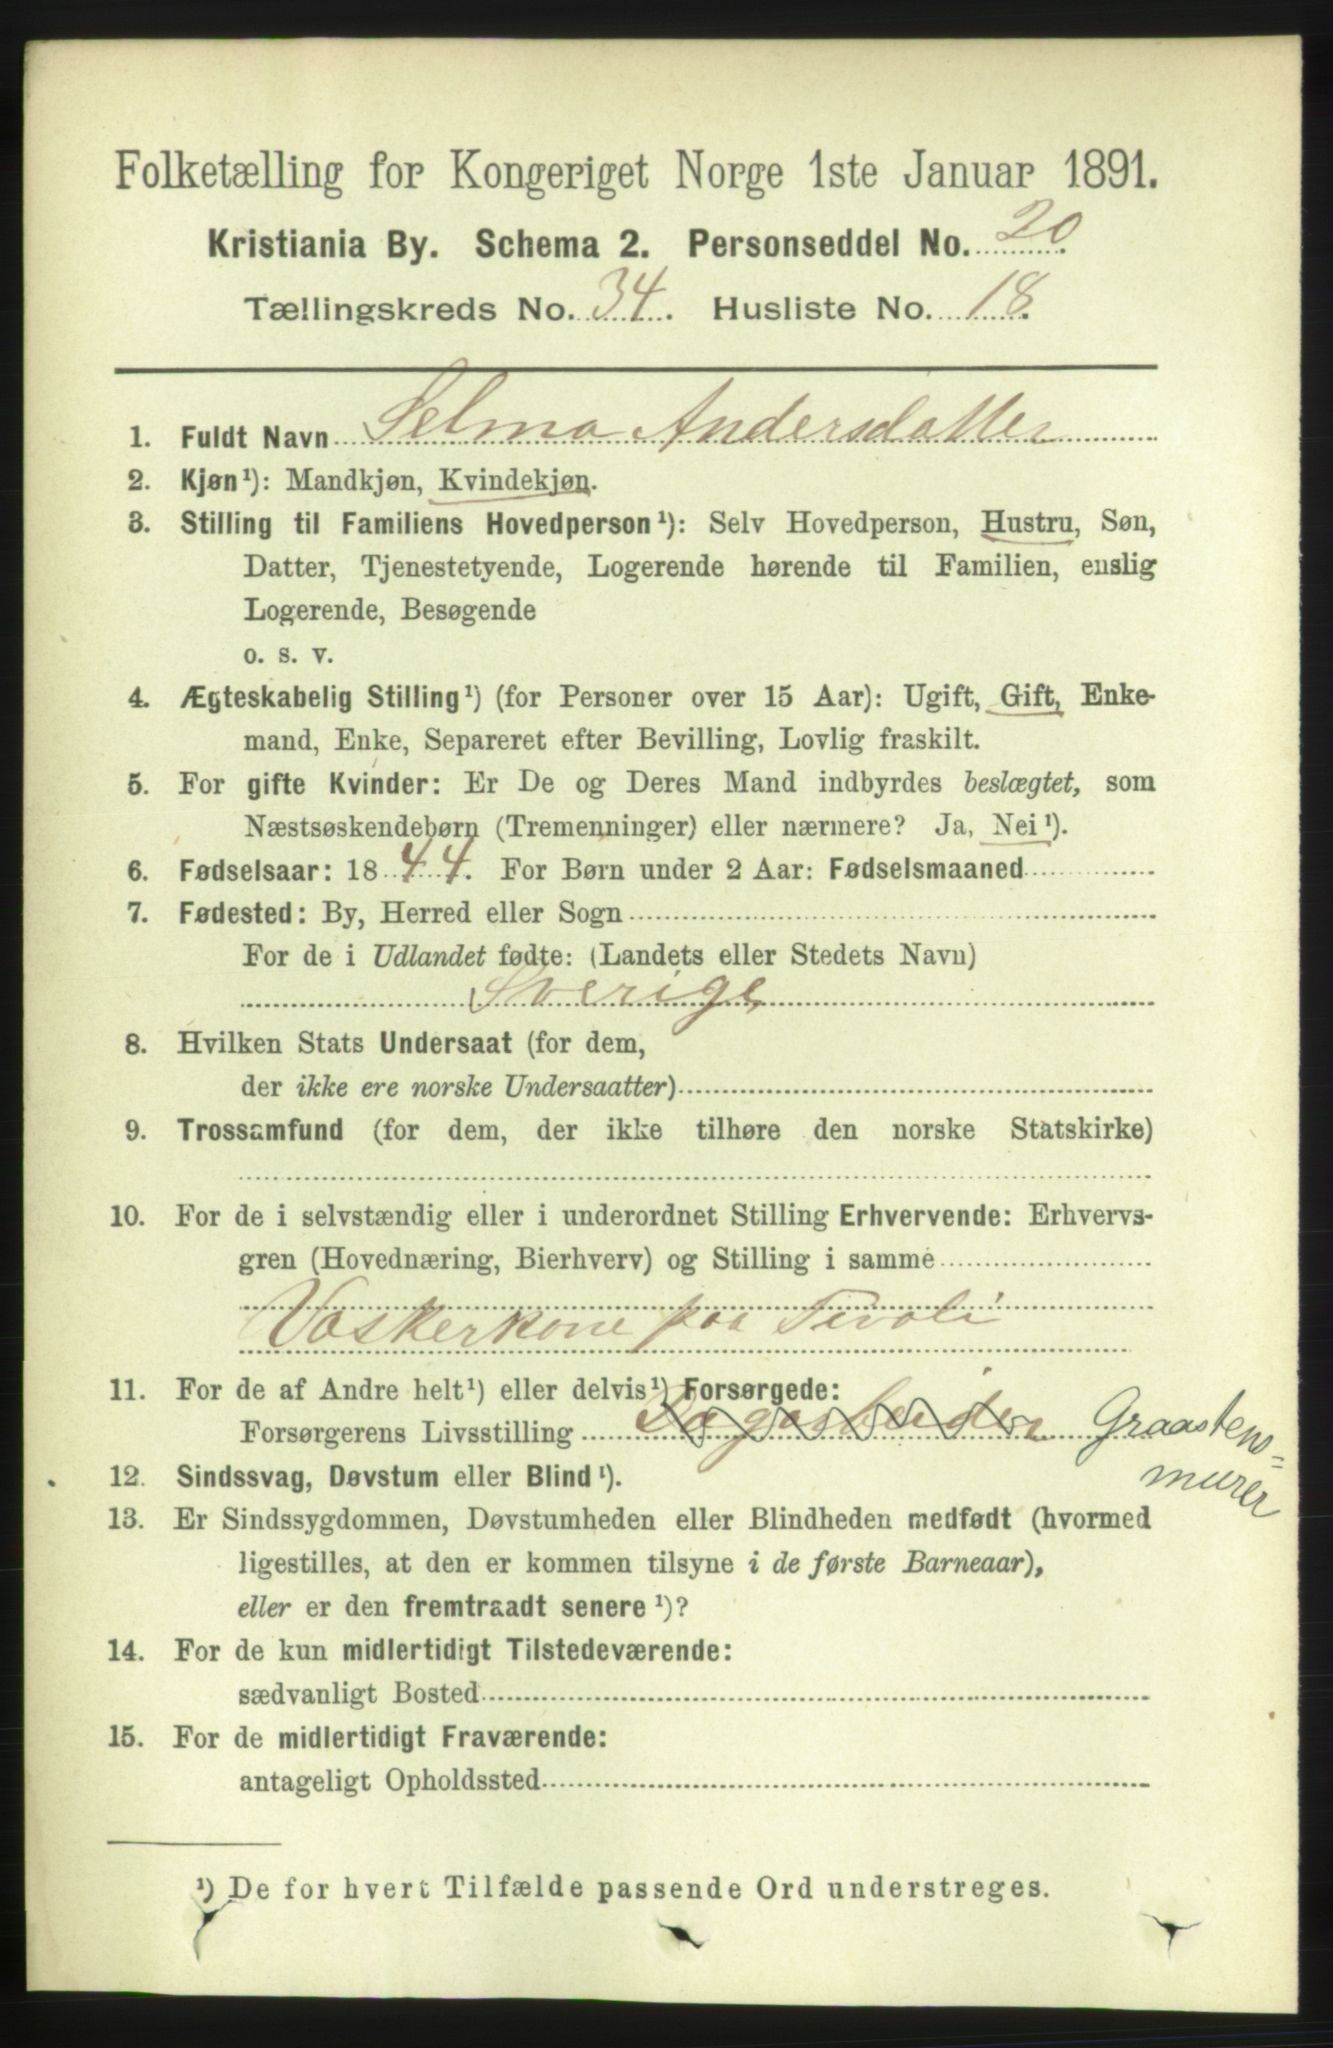 Folketælling for Kongeriget Norge 1ste Januar 1891.
Kristiania By. Schema 2. Personseddel No. 20.
Tællingskreds No. 34. Husliste No. 18.
1. Fuldt Navn Selma Andersdatter
2. Kjøn¹): Mandkjøn, Kvindekjøn.
3. Stilling til Familiens Hovedperson¹): Selv Hovedperson, Hustru, Søn,
Datter, Tjenestetyende, Logerende hørende til Familien, enslig
Logerende, Besøgende
o. s. v.
4. Ægteskabelig Stilling¹) (for Personer over 15 Aar): Ugift, Gift, Enke-
mand, Enke, Separeret efter Bevilling, Lovlig fraskilt.
5. For gifte Kvinder: Er De og Deres Mand indbyrdes beslægtet, som
Næstsøskendebørn (Tremenninger) eller nærmere? Ja, Nei¹).
6. Fødselsaar: 1844. For Børn under 2 Aar: Fødselsmaaned
7. Fødested: By, Herred eller Sogn
For de i Udlandet fødte: (Landets eller Stedets Navn)
Sverige
8. Hvilken Stats Undersaat (for dem,
der ikke ere norske Undersaatter)
9. Trossamfund (for dem, der ikke tilhøre den norske Statskirke)
10. For de i selvstændig eller i underordnet Stilling Erhvervende: Erhvervs-
gren (Hovednæring, Bierhverv) og Stilling i samme
Vaskerkone paa Tivoli
11. For de af Andre helt¹) eller delvis¹) Forsørgede:
Forsørgerens Livsstilling Dagarbeider Graastens=
murer
12. Sindssvag, Døvstum eller Blind¹).
13. Er Sindssygdommen, Døvstumheden eller Blindheden medfødt (hvormed
ligestilles, at den er kommen tilsyne i de første Barneaar),
eller er den fremtraadt senere¹)?
14. For de kun midlertidigt Tilstedeværende:
sædvanligt Bosted
15. For de midlertidigt Fraværende:
antageligt Opholdssted
¹) De for hvert Tilfælde passende Ord understreges.